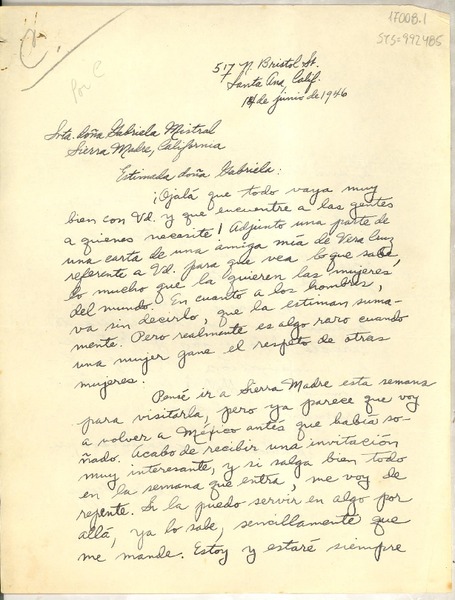 17008.1
SYS=992485
C.
Por C
517 N. Bristol St.
Santa Ana, Calif.
14 de junio de 1946
Srta. doña Gabriela Mistral
Sierra Madre, California
Estimada doña Gabriela:
¡Ojalá que todo vaya muy
bien con Vd. y que encuentre a las gentes
a quienes necesite! Adjunto una parte de
una carta de una amiga mía de Vera Cruz
referente a Vd. para que vea lo que sabe,
lo mucho que la quieren las mujeres
del mundo. En cuanto a los hombres,
va sin decirlo, que la estiman suma-
mente. Pero realmente es algo raro cuando
una mujer gane el respeto de otras
mujeres.
Pensé ir a Sierra Madre esta semana
para visitarla, pero ya parece que voy
a volver a México antes que había so-
ñado. Acabo de recibir una invitación
muy interesante, y si salga bien todo
en la semana que entra, me voy de
repente. Si la puedo servir en algo por
allá, ya lo sabe, sencillamente que
me mande. Estoy y estaré siempre